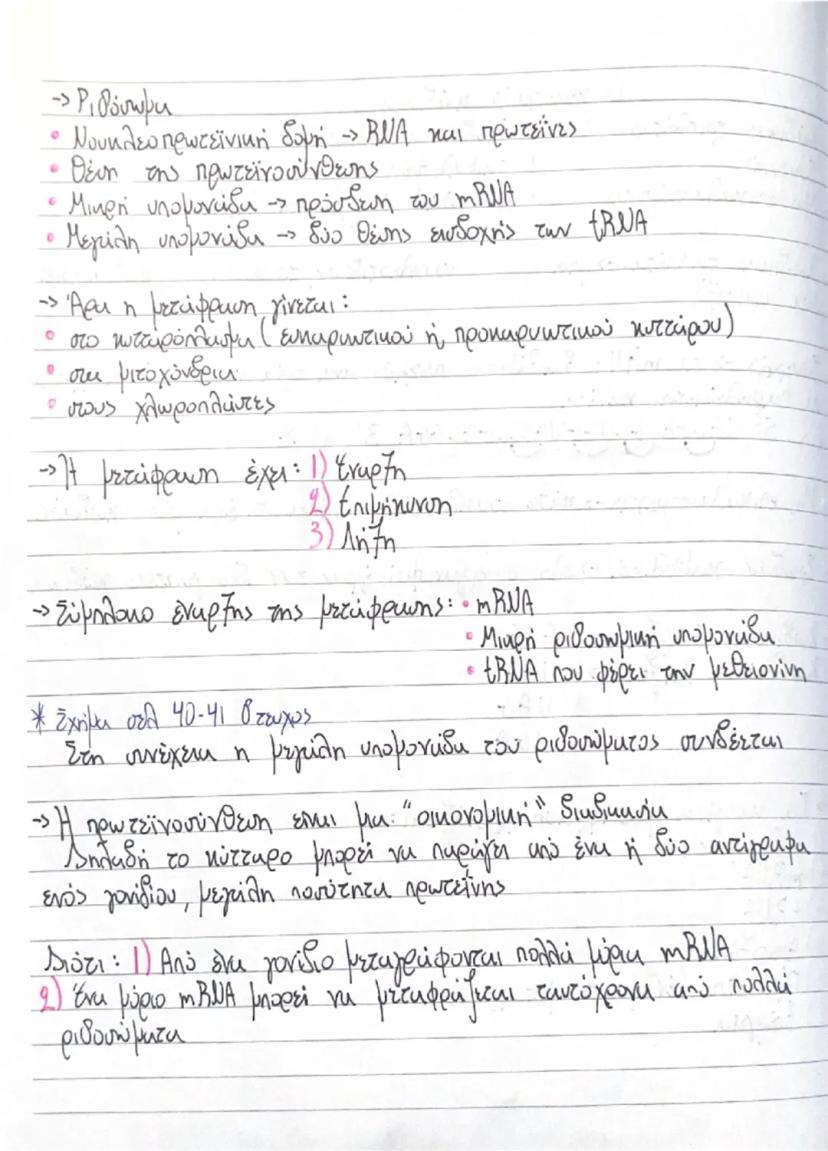 -> Ριβόσωμα
• Νουκλεοπρωτεϊνική δομή -> RNA και πρωτεΐνες
• Θέση της πρωτεϊνοσύνθεσης
• Μικρή υπομονάδα -> πρόσδεση του mRNA
• Μεγάλη υπομονάδα -> δύο θέσης εισδοχής των tRNA
-> Άρα η μετάφραση γίνεται:
• στο κυτταρόπλασμα (ευκαρυωτικού ή προκαρυωτικού κυττάρου)
• στα μιτοχόνδρια
• στους χλωροπλάστες
-> Η μετάφραση έχει: 1) Έναρξη
2) Επιμήκυνση
3) Λήξη
-> Σύμπλοκο έναρξης της μετάφρασης: • mRNA
• Μικρή ριβοσωμική υπομονάδα
• tRNA που φέρει την μεθειονίνη
* Σχήμα σελ 40-41 β τευχος
Στη συνέχεια η μεγάλη υπομονάδα του ριβοσώματος συνδέεται
-> Η πρωτεϊνοσύνθεση είναι μια: "οικονομική" διαδικασία
Δηλαδή το κύτταρο μπορεί να παράγει από ένα ή δύο αντίγραφα
ενός γονιδίου, μεγάλη ποσότητα πρωτεΐνης
Διότι: 1) Από ένα γονίδιο μεταγράφονται πολλά μόρια mRNA
2) Ένα μόριο mRNA μπορεί να μεταφράζεται ταυτόχρονα από πολλά
ριβοσώματα